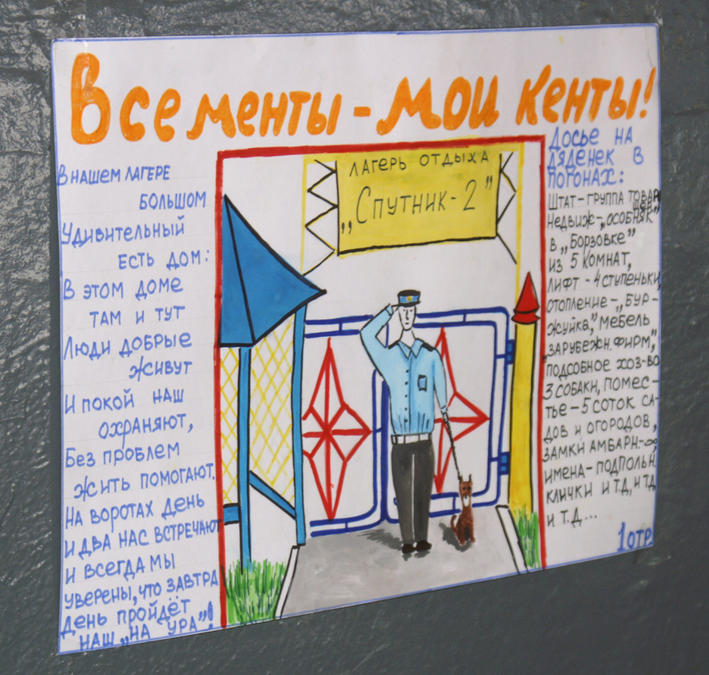 Все менты - мои кенты!
В нашем лагере
большом
Удивительный
есть дом:
В этом доме
там и тут
Люди добрые
живут
И покой наш
охраняют,
Без проблем
жить помогают.
На воротах день
и два нас встречают
и всегда мы
уверены, что завтра
день пройдёт
наш „на ура"!
Лагерь отдыха
„Спутник-2"
Досье на
дяденек в
погонах:
Штат-группа товарищей
недвиж-„особняк"
в „Борзовке"
из 5 комнат,
лифт - 4 ступеньки,
отопление-„бур-
жуйка", мебель
„зарубежн. фирм",
подсобное хоз-во
3 собаки, помес-
тье - 5 соток са-
дов и огородов,
замки амбарн-
имена-подпольн.
клички и тд, и тд
и т.д...
1 отр